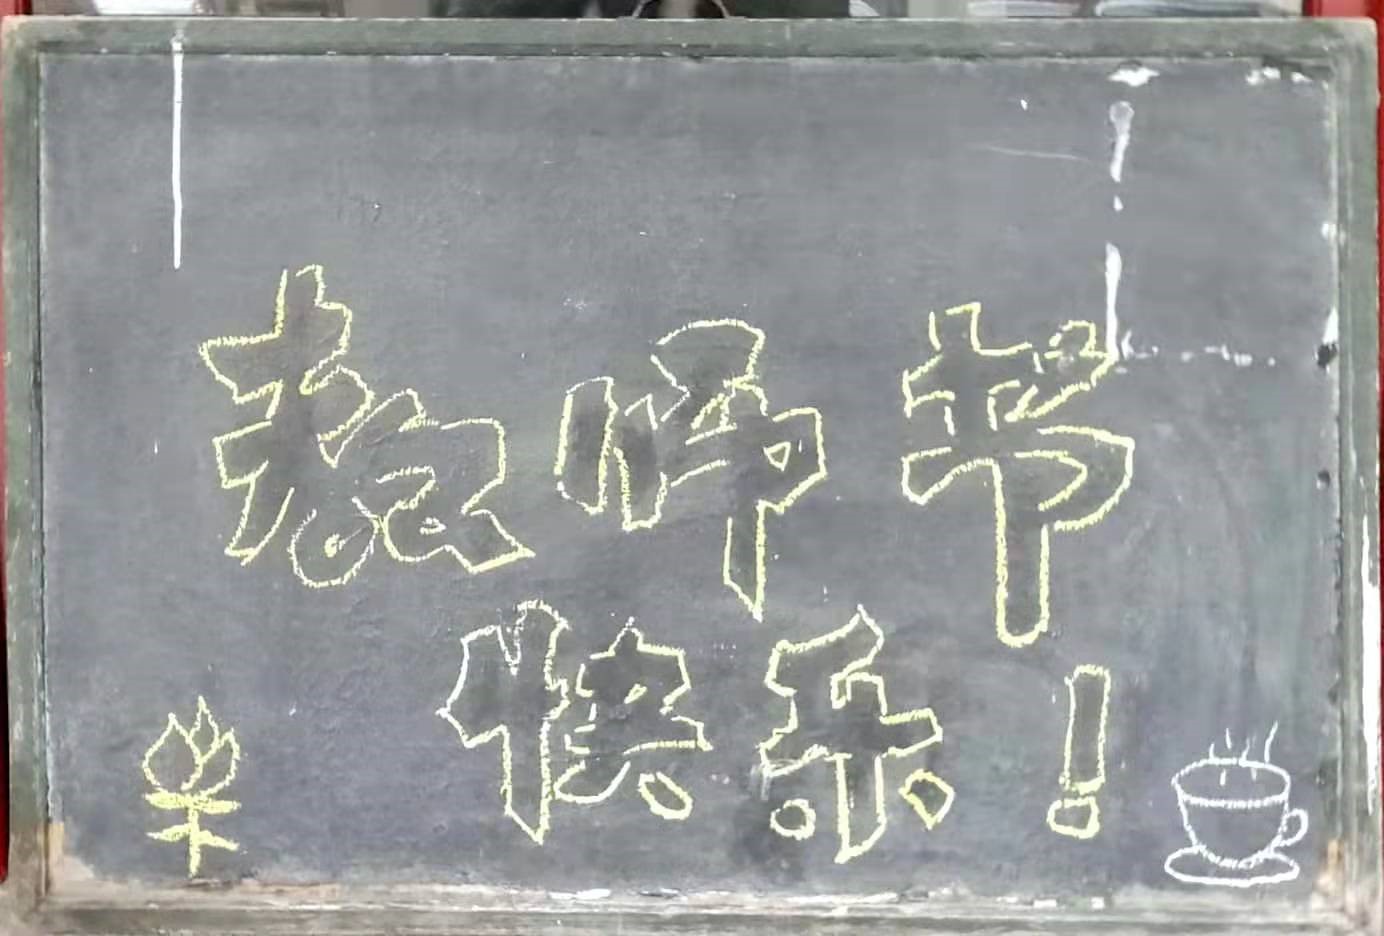 教师节
快乐!